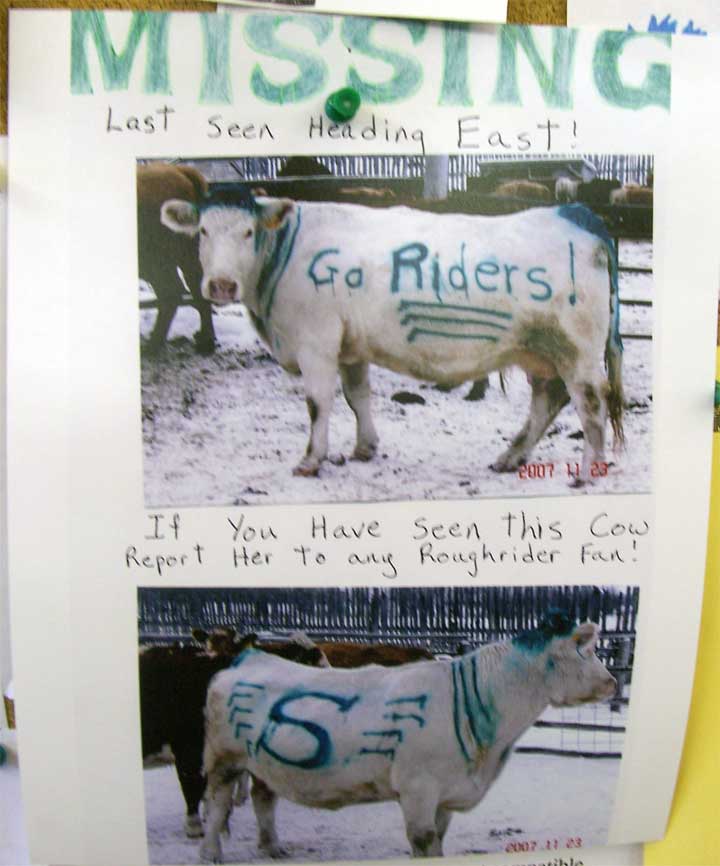 MISSING
Last Seen Heading East!
Go Riders!
2007 11 23
If You Have Seen this Cow
Report Her to any Roughrider Fan!
S
2007 11 23